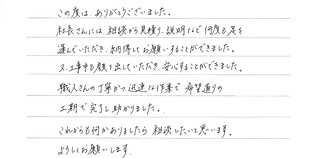 この度は、ありがとうございました。
社長さんには、相談から見積り、説明など何度も足を
運んでいただき、納得してお願いすることができました。
又、工事中も顔を出していただき、安心することができました。
職人さんの丁寧かつ迅速な作業で希望通りの
工期で完了し助かりました。
これからも何かありましたら相談したいと思います。
よろしくお願いします。